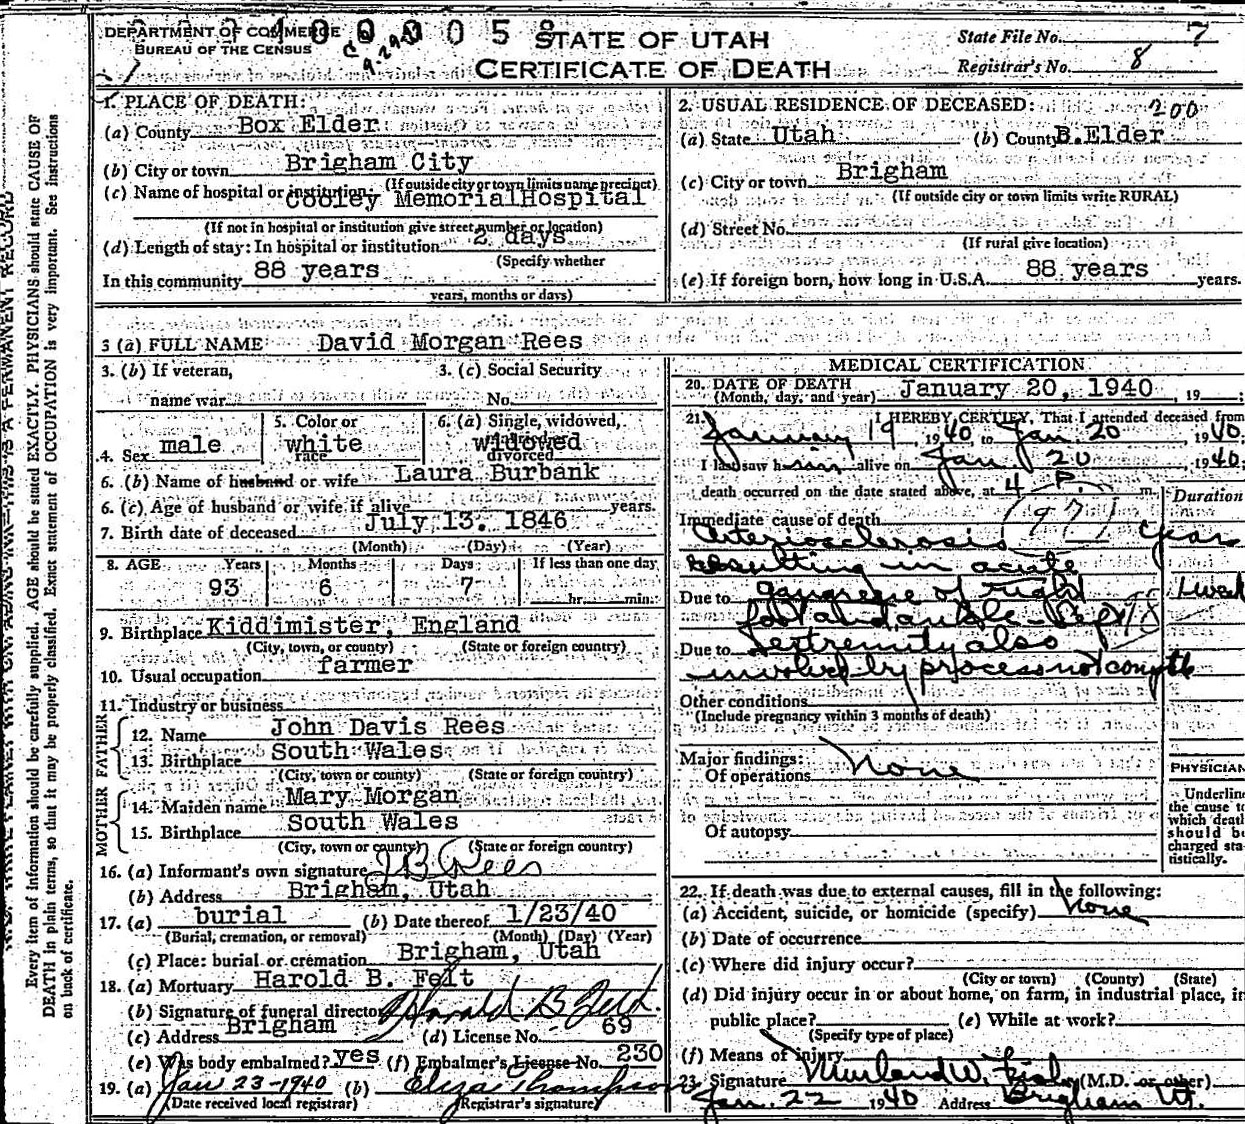 DEPARTMENT OF COMMERCE
BUREAU OF THE CENSUS
0 0 5 8
STATE OF UTAH
CERTIFICATE OF DEATH
State File No. 7
Registrar's No. 8
1. PLACE OF DEATH:
(a) County Box Elder
(b) City or town Brigham City
(If outside city or town limits name precinct)
(c) Name of hospital or institution: Cooley Memorial Hospital
(If not in hospital or institution give street number or location)
(d) Length of stay: In hospital or institution 2 days
(Specify whether
In this community 88 years
years, months or days)
2. USUAL RESIDENCE OF DECEASED: 200
(a) State Utah (b) County B.Elder
(c) City or town Brigham
(If outside city or town limits write RURAL)
(d) Street No.
(If rural give location)
(e) If foreign born, how long in U.S.A. 88 years years.
3 (a) FULL NAME David Morgan Rees
3. (b) If veteran,
name war
3. (c) Social Security
No.
4. Sex male
5. Color or race white
6. (a) Single, widowed, married, divorced widowed
6. (b) Name of husband or wife Laura Burbank
6. (c) Age of husband or wife if alive years.
7. Birth date of deceased July 13. 1846
(Month) (Day) (Year)
8. AGE Years Months Days If less than one day
93 6 7 hr. min.
9. Birthplace Kiddimister, England
(City, town, or county) (State or foreign country)
10. Usual occupation farmer
11. Industry or business
FATHER
12. Name John Davis Rees
13. Birthplace South Wales
(City, town or county) (State or foreign country)
MOTHER
14. Maiden name Mary Morgan
15. Birthplace South Wales
(City, town or county) (State or foreign country)
16. (a) Informant's own signature J B Rees
(b) Address Brigham, Utah
17. (a) burial (b) Date thereof 1/23/40
(Burial, cremation, or removal) (Month) (Day) (Year)
(c) Place: burial or cremation Brigham, Utah
18. (a) Mortuary Harold B. Felt
(b) Signature of funeral director Harold B Felt
(c) Address Brigham (d) License No. 69
(e) Was body embalmed? yes (f) Embalmer's License No. 230
19. (a) Jan 23-1940 (b) Eliza Thompson
(Date received local registrar) (Registrar's signature)
MEDICAL CERTIFICATION
20. DATE OF DEATH January 20, 1940, 19
(Month, day, and year)
21. I HEREBY CERTIFY, That I attended deceased from
January 19, 1940, to Jan. 20 1940;
I last saw him alive on Jan. 20, 1940;
death occurred on the date stated above, at 4 P. m.
Duration
Immediate cause of death 97
Arteriosclerosis years
resulting in acute
Due to gangrene of right 1 week
foot and ankle - Left
Due to extremity also
involved by process not complete
Other conditions
(Include pregnancy within 3 months of death)
Major findings:
Of operations None
Of autopsy
PHYSICIAN
Underline
the cause to
which death
should be
charged sta-
tistically.
22. If death was due to external causes, fill in the following:
(a) Accident, suicide, or homicide (specify) None
(b) Date of occurrence
(c) Where did injury occur?
(City or town) (County) (State)
(d) Did injury occur in or about home, on farm, in industrial place, in
public place? (e) While at work?
(Specify type of place)
(f) Means of injury
23. Signature W. (M.D. or other)
Jan. 22 1940 Address Brigham Ut.
Every item of information should be carefully supplied. AGE should be stated EXACTLY. PHYSICIANS should state CAUSE OF
DEATH in plain terms, so that it may be properly classified. Exact statement of OCCUPATION is very important. See instructions
on back of certificate.